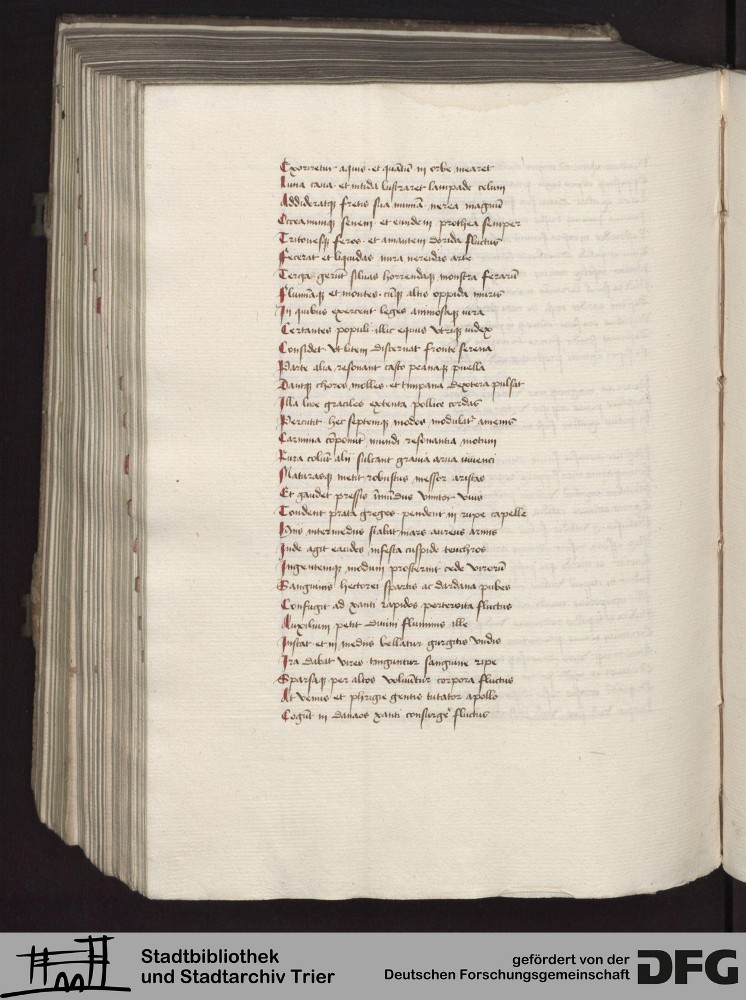 Exoriretur aquis · et quātū in orbe mearet
Luna caua · et nitida lustraret lampade celum
Addideratqȝ fretis sua numīa · nerea magnū
Occeanumqȝ senem · et eundem prothea semper
Tritonesqȝ feros · et amantem dorida fluctus
Fecerat et liquidas mira nereidas arte
Terga gerūt siluas horrendaqȝ monstra ferarū
Flumīaqȝ et montes · cūqȝ altis oppida muris
In quibus exercent leges animosaqȝ iura
Certantes populi · illic equus vtriqȝ iudex
Considet · Vt litem discernat fronte serena
Parte alia resonant casto peanaqȝ puella
Dantqȝ choros molles · et timpana dextera pulsat
Illa lire graciles extenta pollice cordas
Percutit · hec septemqȝ modos modulatʳ amenis
Carmina cōponūt mundi resonantia motum
Rura colūt alii sulcant grauia arua iuuenci
Maturasqȝ metit robustus messor aristas
Et gaudet pressis īmūdus vinitor vuis
Tondent prata greges · pendent in rupe capelle
Hiis intermedius stabat mars aureus armis
Inde agit eacides infesta cuspide teuchros
Ingentemqȝ modum prosternit cede virorū
Sanguinis hectorei sparsis ac dardana pubes
Confugit ad xanti rapidos perterrita fluctus
Auxilium petit diuini fluminis ille
Instat et in mediis bellatur gurgitis vndis
Ira dabat vires · tinguntur sanguine ripe
Sparsaqȝ per altos voluūtur corpora fluctus
At venus et phrigie gentis tutator apollo
Cogūt in danaos xanti consurgeʳ fluctus
Stadtbibliothek
und Stadtarchiv Trier
gefördert von der
Deutschen Forschungsgemeinschaft
DFG